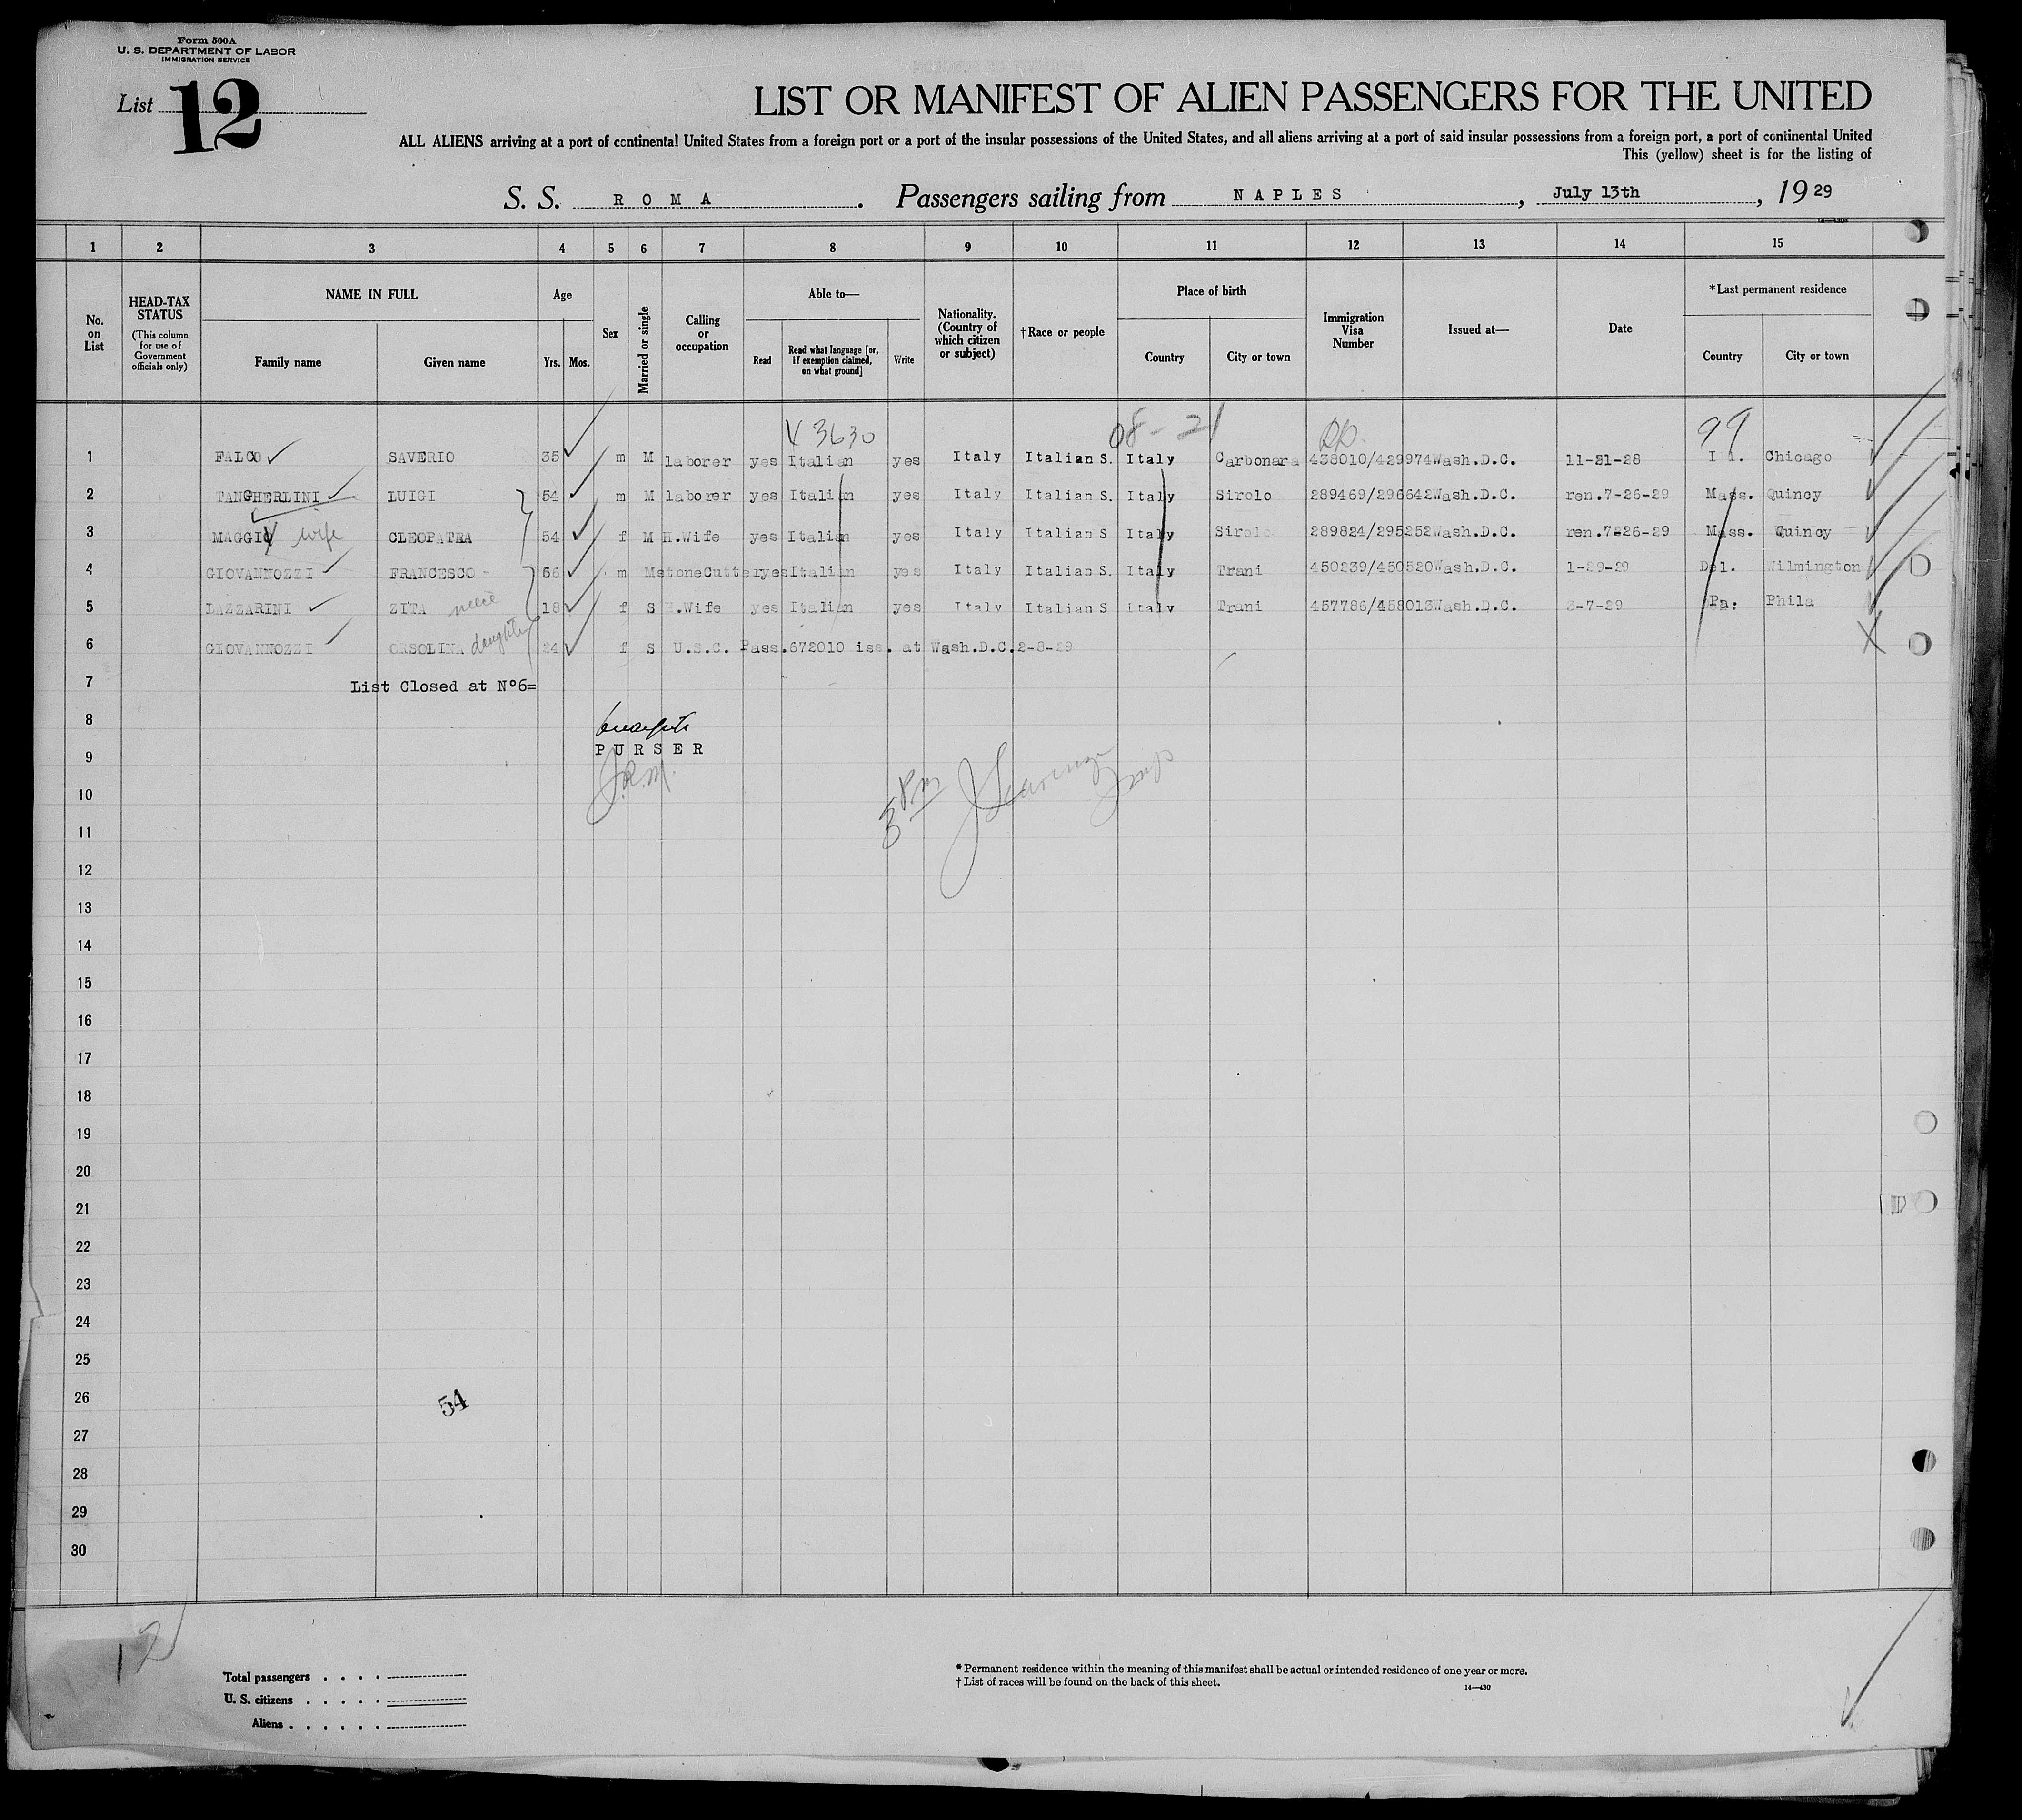 Form 500A
U. S. DEPARTMENT OF LABOR
IMMIGRATION SERVICE
List 12
LIST OR MANIFEST OF ALIEN PASSENGERS FOR THE UNITED
ALL ALIENS arriving at a port of continental United States from a foreign port or a port of the insular possessions of the United States, and all aliens arriving at a port of said insular possessions from a foreign port, a port of continental United
This (yellow) sheet is for the listing of
S. S. ROMA. Passengers sailing from NAPLES, July 13th, 1929
1 2 3 4 5 6 7 8 9 10 11 12 13 14 15
No. on List
HEAD-TAX STATUS (This column for use of Government officials only)
NAME IN FULL
Family name Given name
Age
Yrs. Mos.
Sex
Married or single
Calling or occupation
Able to—
Read Read what language [or, if exemption claimed, on what ground] Write
Nationality. (Country of which citizen or subject)
†Race or people
Place of birth
Country City or town
Immigration Visa Number
Issued at—
Date
*Last permanent residence
Country City or town
3630 08-21 99
1 FALCO SAVERIO 35 m M laborer yes Italian yes Italy Italian S. Italy Carbonara 438010/429974 Wash.D.C. 11-21-28 Chicago
2 TANGHERLINI LUIGI 54 m M laborer yes Italian yes Italy Italian S. Italy Sirolo 289469/296642 Wash.D.C. ren.7-26-29 Mass. Quincy
3 MAGGI wife CLEOPATRA 54 f M H.Wife yes Italian yes Italy Italian S Italy Sirolo 289824/295252 Wash.D.C. ren.7-26-29 Mass. Quincy
4 GIOVANNOZZI FRANCESCO 56 m M stoneCutter yes Italian yes Italy Italian S. Italy Trani 450239/450520 Wash.D.C. 1-29-29 Del. Wilmington
5 LAZZARINI ZITA niece 18 f S H.Wife yes Italian yes Italy Italian S Italy Trani 457786/458013 Wash.D.C. 3-7-29 Pa. Phila
6 GIOVANNOZZI ORSOLINA daughter 24 f S U.S.C. Pass.672010 iss. at Wash.D.C.2-8-29
7 List Closed at Nº6=
8
PURSER
9
J.R.M.
3 PM
10
11
12
13
14
15
16
17
18
19
20
21
22
23
24
25
26
54
27
28
29
30
12
Total passengers
U. S. citizens
Aliens
* Permanent residence within the meaning of this manifest shall be actual or intended residence of one year or more.
† List of races will be found on the back of this sheet.
14—430